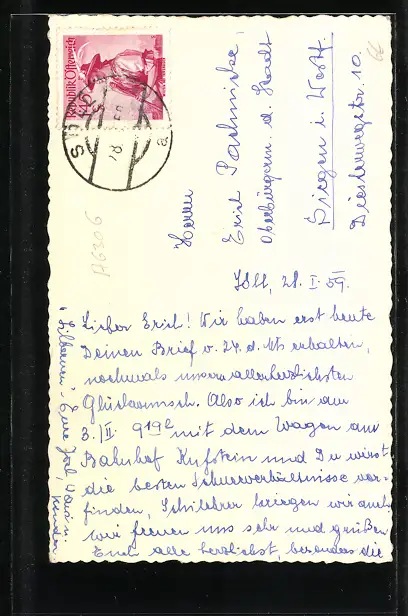 Republik Österreich
Herrn
Erich Pachnicke,
Oberbürgerm. d. Stadt
Siegen i. Westf.
Diesterwegstr. 10.
A6306
Söll, 28. I. 59.
Lieber Erich! Wir haben erst heute
Deinen Brief v. 24. d. Mts erhalten,
nochmals unsere allerherzlichsten
Glückwunsch. Also ich bin am
3./II. 9 19h mit dem Wagen am
Bahnhof Kufstein und Du wirst
die besten Schneeverhältnisse vor-
finden, Schilehrer kriegen wir auch,
wir freuen uns sehr und grüßen
Euch alle herzlichst, besonders die
Eure
Kinder